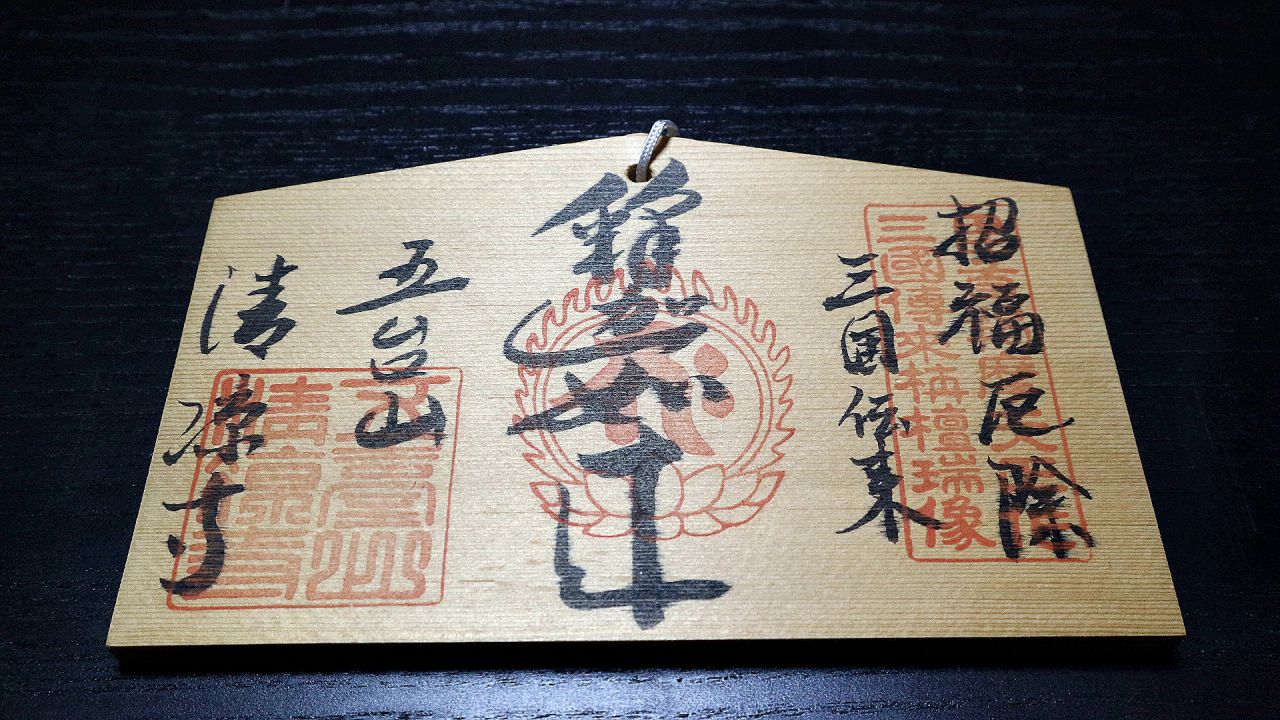 招福厄除
三国伝来
三國傳来栴檀瑞像
釋迦
五台山
清凉寺
五臺山
清凉寺